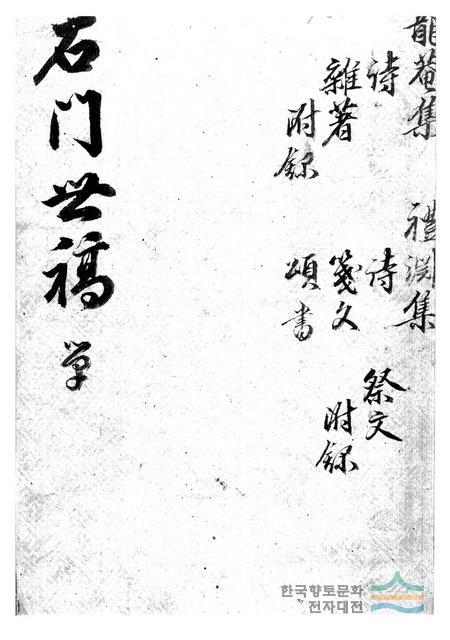 菴集 禮渕集
詩 詩 祭文
雜著 箋文 附錄
附錄 頌書
石門世稿 单
한국향토문화
전자대전